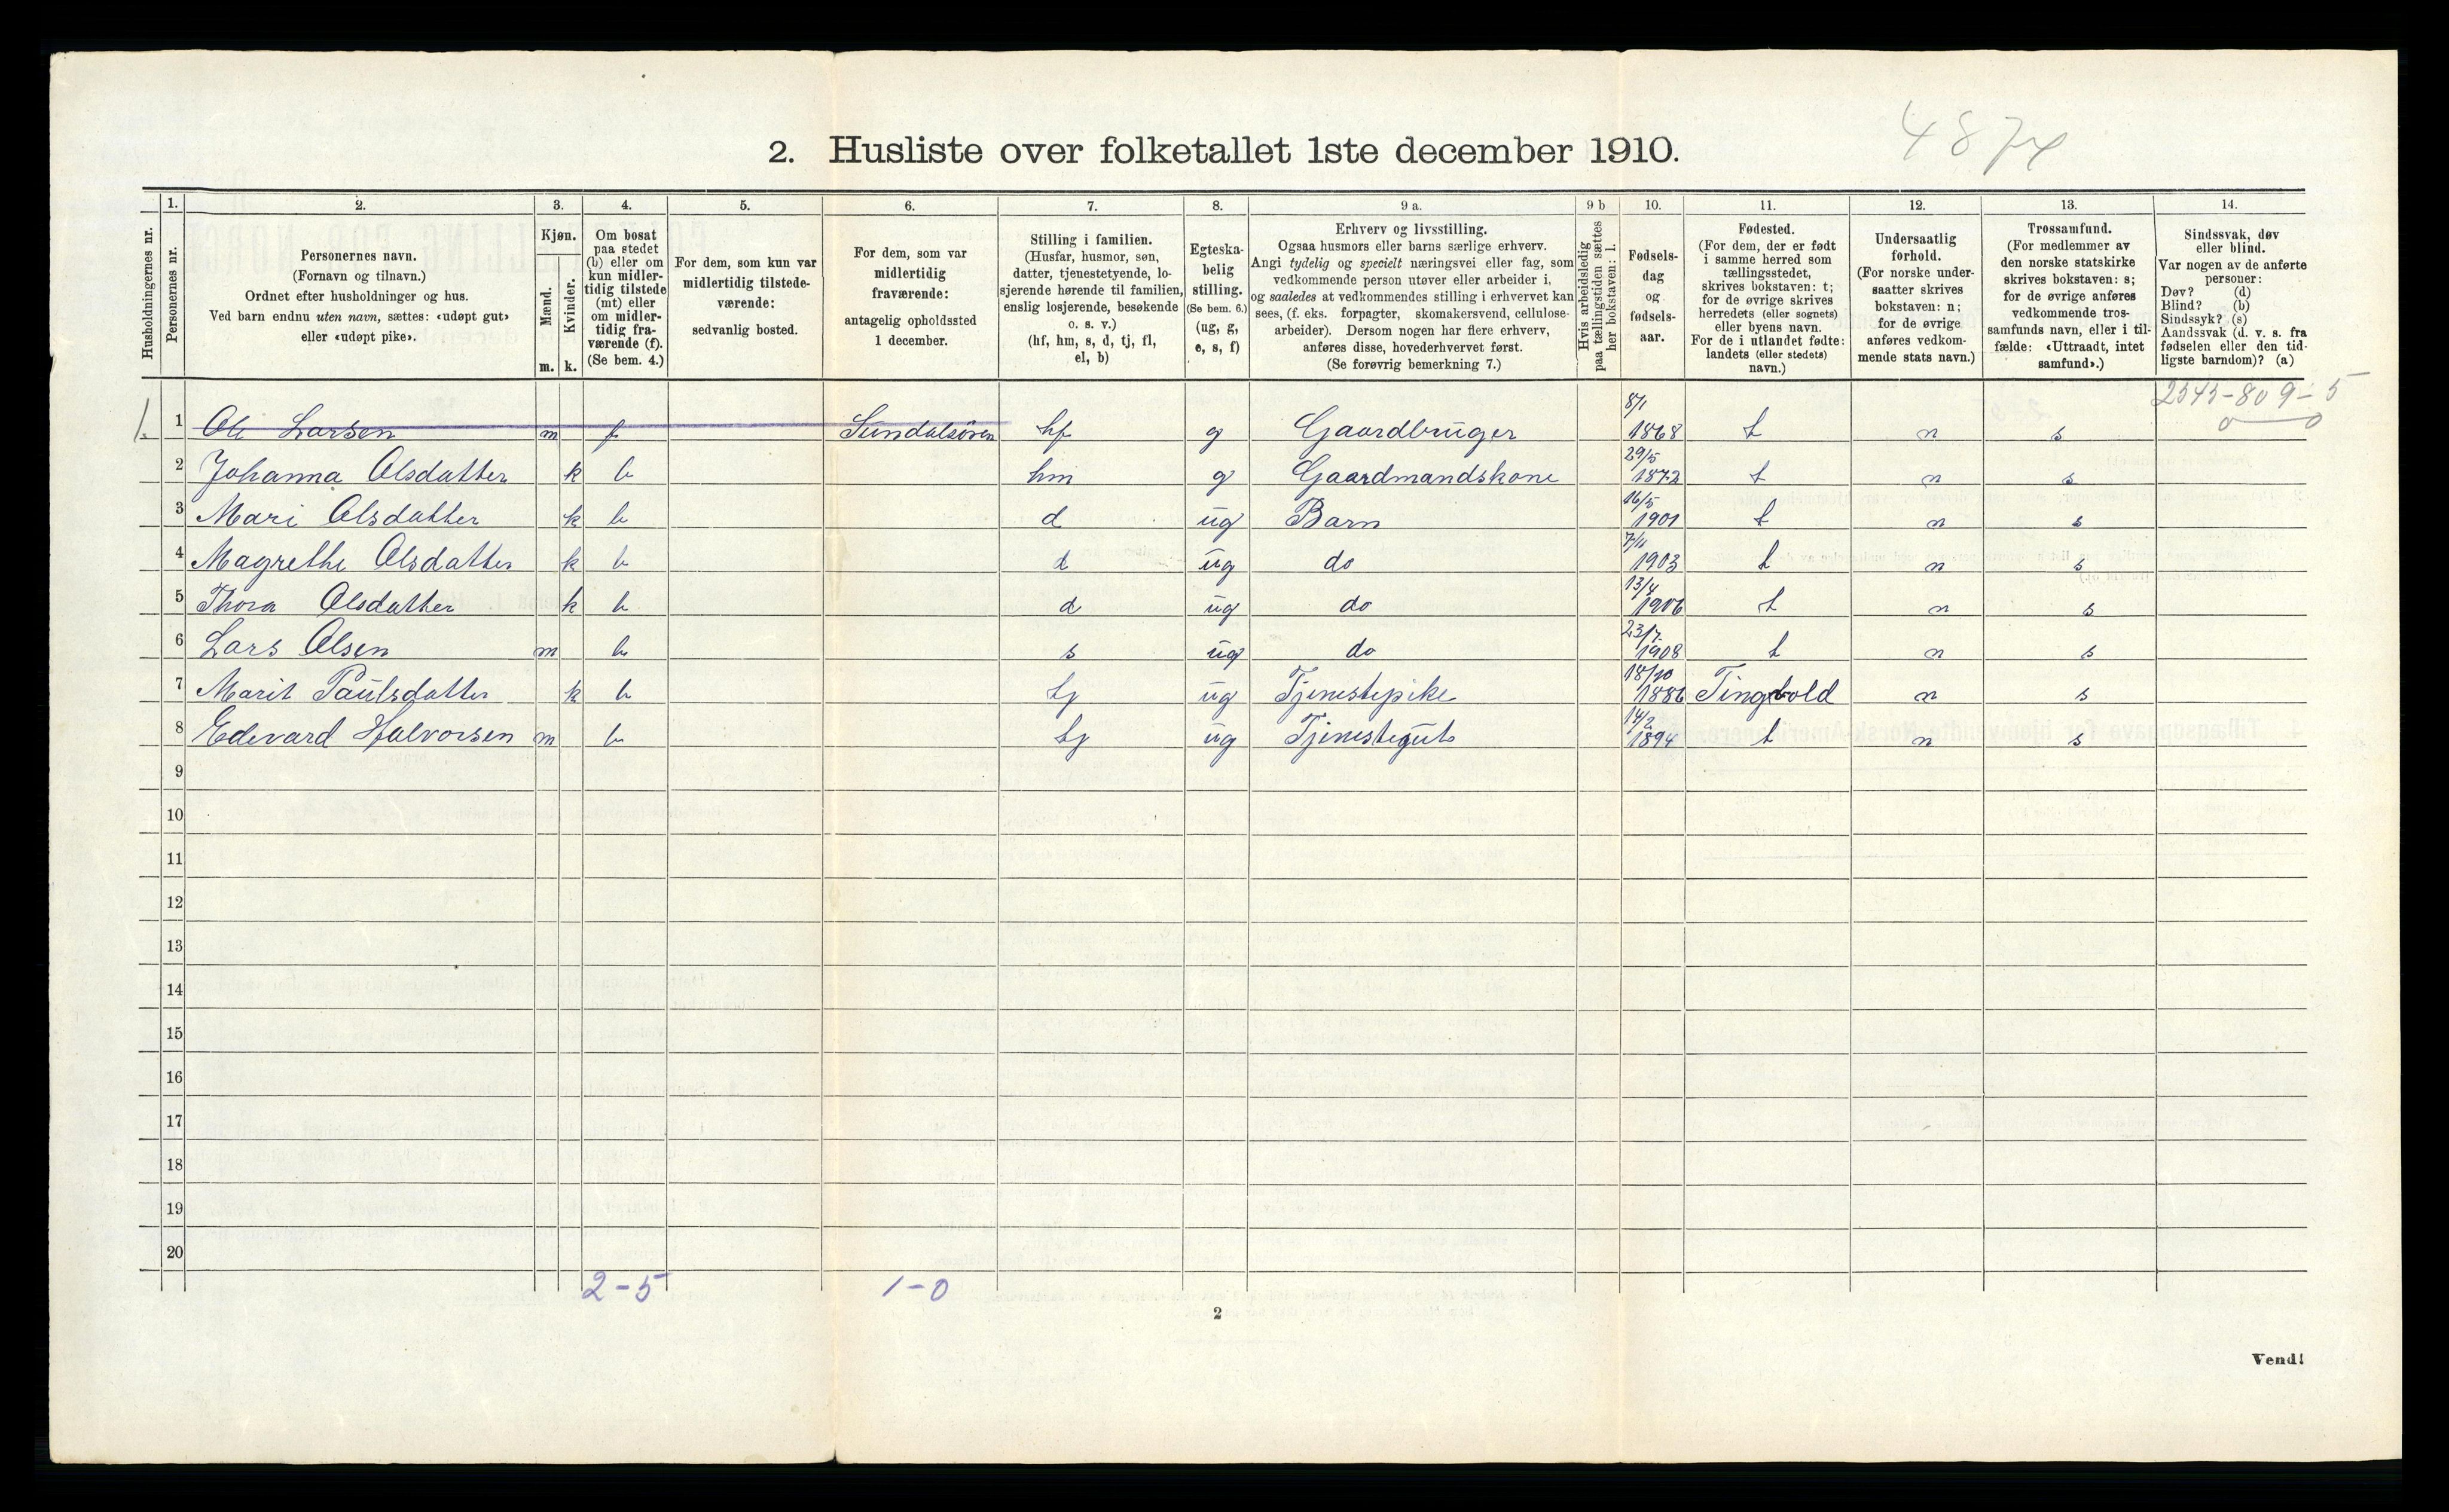 4874
2. Husliste over folketallet 1ste december 1910.
1. 2. 3. 4. 5. 6. 7. 8. 9 a. 9 b 10. 11. 12. 13. 14.
Husholdningernes nr.
Personernes nr.
Personernes navn.
(Fornavn og tilnavn.)
Ordnet efter husholdninger og hus.
Ved barn endnu uten navn, sættes: «udøpt gut»
eller «udøpt pike».
Kjøn.
Mænd.
Kvinder.
m. k.
Om bosat
paa stedet
(b) eller om
kun midler-
tidig tilstede
(mt) eller
om midler-
tidig fra-
værende (f).
(Se bem. 4.)
For dem, som kun var
midlertidig tilstede-
værende:
sedvanlig bosted.
For dem, som var
midlertidig
fraværende:
antagelig opholdssted
1 december.
Stilling i familien.
(Husfar, husmor, søn,
datter, tjenestetyende, lo-
sjerende hørende til familien,
enslig losjerende, besøkende
o. s. v.)
(hf, hm, s, d, tj, fl,
el, b)
Egteska-
belig
stilling.
(Se bem. 6.)
(ug, g,
e, s, f)
Erhverv og livsstilling.
Ogsaa husmors eller barns særlige erhverv.
Angi tydelig og specielt næringsvei eller fag, som
vedkommende person utøver eller arbeider i,
og saaledes at vedkommendes stilling i erhvervet kan
sees, (f. eks. forpagter, skomakersvend, cellulose-
arbeider). Dersom nogen har flere erhverv,
anføres disse, hovederhvervet først.
(Se forøvrig bemerkning 7.)
Hvis arbeidsledig
paa tællingstiden sættes
her bokstaven: l.
Fødsels-
dag
og
fødsels-
aar.
Fødested.
(For dem, der er født
i samme herred som
tællingsstedet,
skrives bokstaven: t;
for de øvrige skrives
herredets (eller sognets)
eller byens navn.
For de i utlandet fødte:
landets (eller stedets)
navn.)
Undersaatlig
forhold.
(For norske under-
saatter skrives
bokstaven: n;
for de øvrige
anføres vedkom-
mende stats navn.)
Trossamfund.
(For medlemmer av
den norske statskirke
skrives bokstaven: s;
for de øvrige anføres
vedkommende tros-
samfunds navn, eller i til-
fælde: «Uttraadt, intet
samfund».)
Sindssvak, døv
eller blind.
Var nogen av de anførte
personer:
Døv? (d)
Blind? (b)
Sindssyk? (s)
Aandssvak (d. v. s. fra
fødselen eller den tid-
ligste barndom)? (a)
2545-809-5
0 0
1. 1 Ole Larsen m f Sundalsøren hf g Gaardbruger 8/1 1868 t n s
2 Johanna Olsdatter k b hm g Gaardmandskone 29/5 1872 t n s
3 Mari Olsdatter k b d ug Barn 16/5 1901 t n s
4 Magrethe Olsdatter k b d ug do 7/11 1903 t n s
5 Thora Olsdatter k b d ug do 13/4 1906 t n s
6 Lars Olsen m b s ug do 23/7 1908 t n s
7 Marit Paulsdatter k b tj ug Tjenestepike 18/10 1886 Tingvold n s
8 Edevard Halvorsen m b tj ug Tjenestegut 14/2 1894 t n s
9
10
11
12
13
14
15
16
17
18
19
20
2-5 1-0
2
Vend!